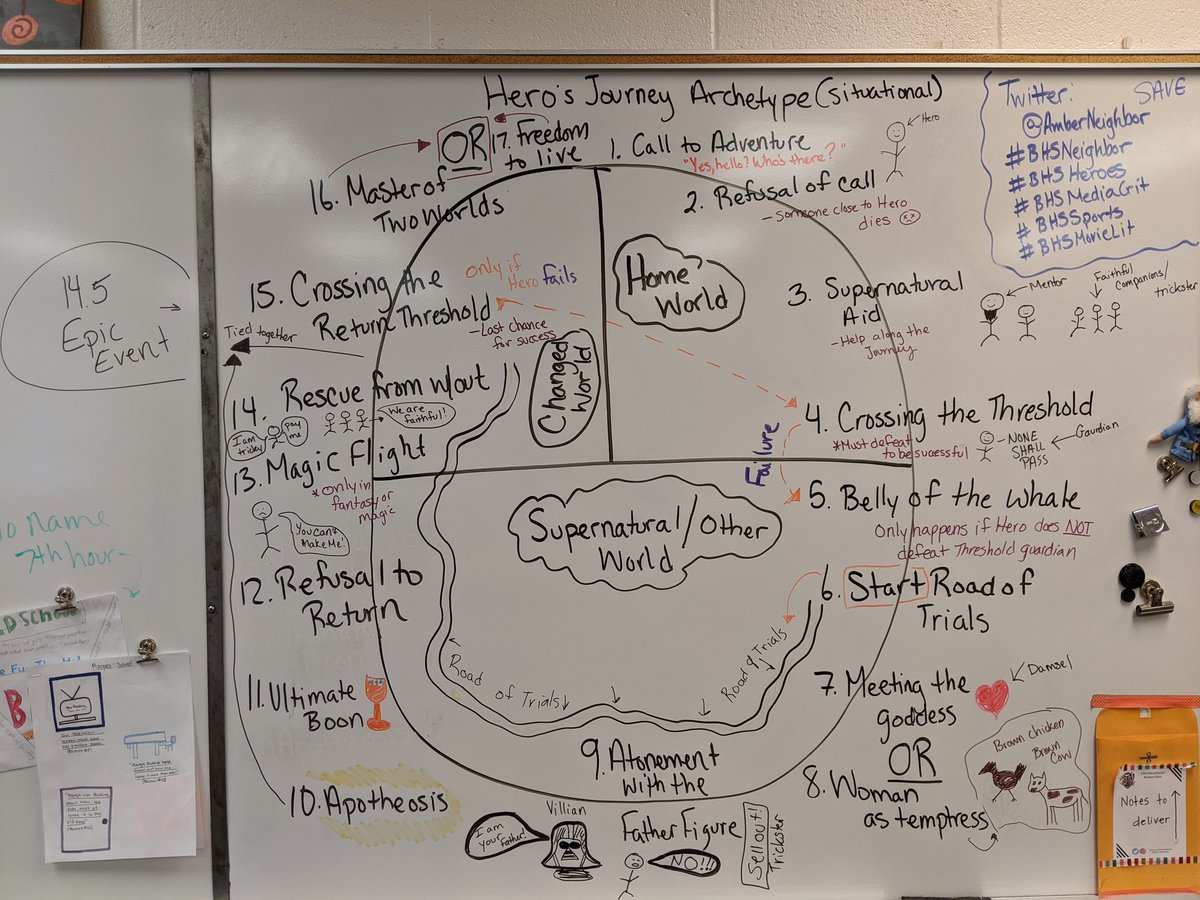 Hero's Journey Archetype (situational)
OR
17. Freedom
to live
1. Call to Adventure
"Yes, hello? Who's there?"
Hero
2. Refusal of call
- Someone close to Hero
dies
3. Supernatural
Aid
- Help along the
Journey
Mentor
Faithful
Companions/
trickster
4. Crossing the Threshold
*Must defeat
to be successful
- NONE
SHALL
PASS
Gaurdian
Failure
5. Belly of the whale
Only happens if Hero does NOT
defeat Threshold guardian
6. Start Road of
Trials
7. Meeting the
goddess
Damsel
OR
8. Woman
as temptress
Brown chicken
Brown
Cow
9. Atonement
with the
Father Figure
Villian
I am
your father!
NO!!
Sellout!
Trickster
10. Apotheosis
11. Ultimate
Boon
12. Refusal to
Return
You can't
Make Me!
13. Magic Flight
*only in
fantasy or
magic
14. Rescue from w/out
I am
tricky
pay
me
We are
faithful!
15. Crossing the
Return Threshold
- Last chance
for success
only if
Hero fails
Tied together
16. Master of
Two Worlds
Home
World
Changed
World
Supernatural/Other
World
Road of Trials
Road of Trials
14.5
Epic
Event
Twitter:
SAVE
@AmberNeighbor
#BHSNeighbor
#BHSHeroes
#BHSMediaCrit
#BHSSports
#BHSMovieLit
Name
7th hour
Notes to
deliver